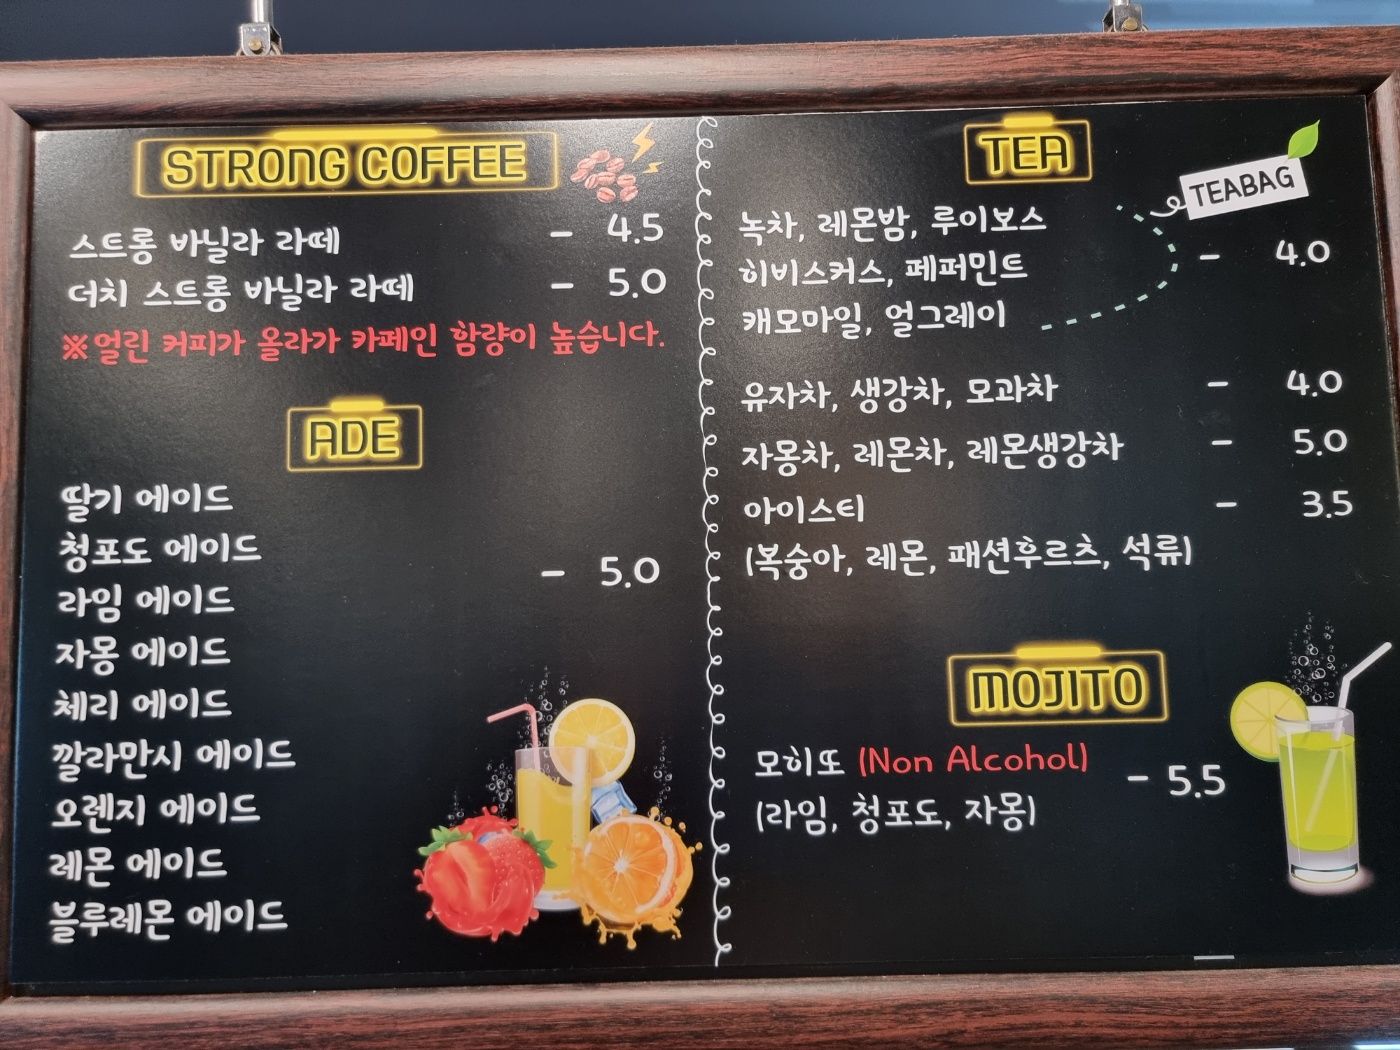 STRONG COFFEE
스트롱 바닐라 라떼 - 4.5
더치 스트롱 바닐라 라떼 - 5.0
※얼린 커피가 올라가 카페인 함량이 높습니다.
ADE
딸기 에이드
청포도 에이드
- 5.0
라임 에이드
자몽 에이드
체리 에이드
깔라만시 에이드
오렌지 에이드
레몬 에이드
블루레몬 에이드
TEA
TEABAG
녹차, 레몬밤, 루이보스
히비스커스, 페퍼민트 - 4.0
캐모마일, 얼그레이
유자차, 생강차, 모과차 - 4.0
자몽차, 레몬차, 레몬생강차 - 5.0
아이스티 - 3.5
(복숭아, 레몬, 패션후르츠, 석류)
MOJITO
모히또 (Non Alcohol) - 5.5
(라임, 청포도, 자몽)